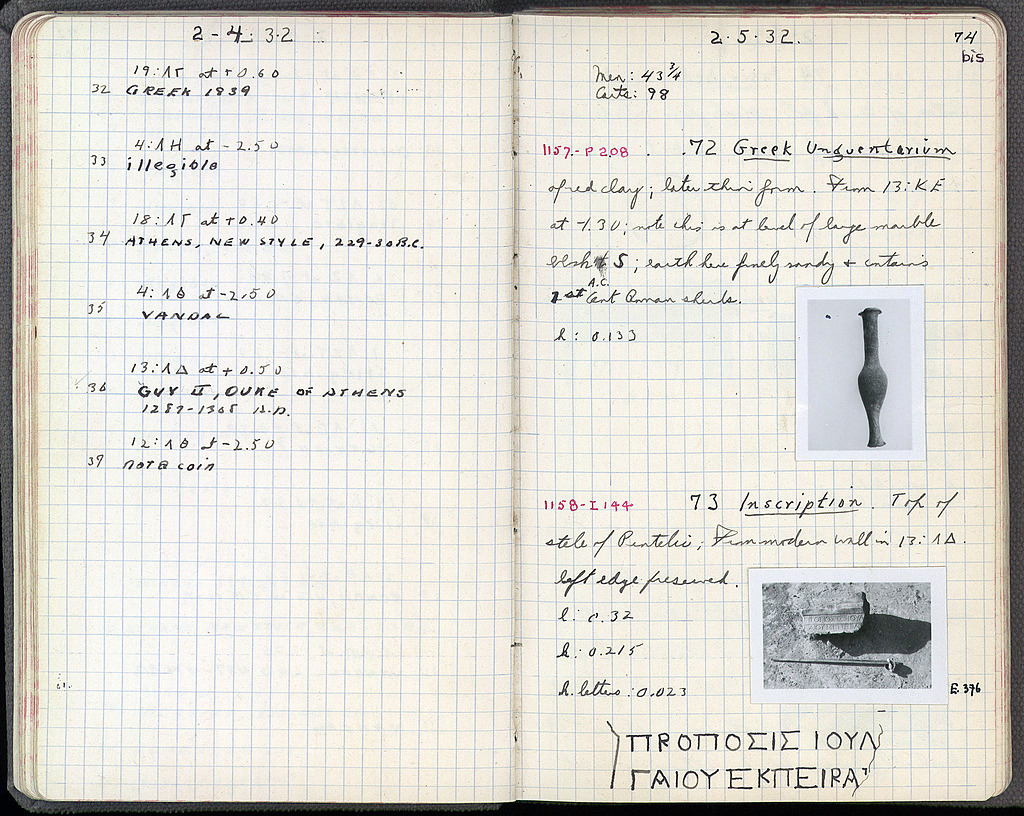 2-4-32
19:ΛΓ at +0.60
32 GREEK 1839
4:ΛH at -2.50
33 illegible
18:ΛΓ at +0.40
34 ATHENS, NEW STYLE, 229-30 B.C.
4:ΛΘ at -2.50
35 VANDAL
13:ΛΔ at +0.50
36 GUY II, DUKE OF ATHENS
1287-1308 A.D.
12:ΛΘ at -2.50
39 not a coin
2.5.32.
74
bis
Men: 43 3/4
Carts: 98
1157-P 208 . 72 Greek Unguentarium
of red clay; later thin form. From 13:KE
at -1.30; note this is at level of large marble
block to S; earth here finely sandy + contains
1st A.C. Cent Roman sherds.
h: 0.133
1158-I 144 73 Inscription. Top of
stele of Pentelic; From modern wall in 13:ΛΔ.
left edge preserved.
l: 0.32
h: 0.215
h. letters: 0.023
E.376
ΠΡΟΠΟΣΙΣ ΙΟΥΛ
ΓΑΙΟΥ ΕΚΠΕΙΡΑ